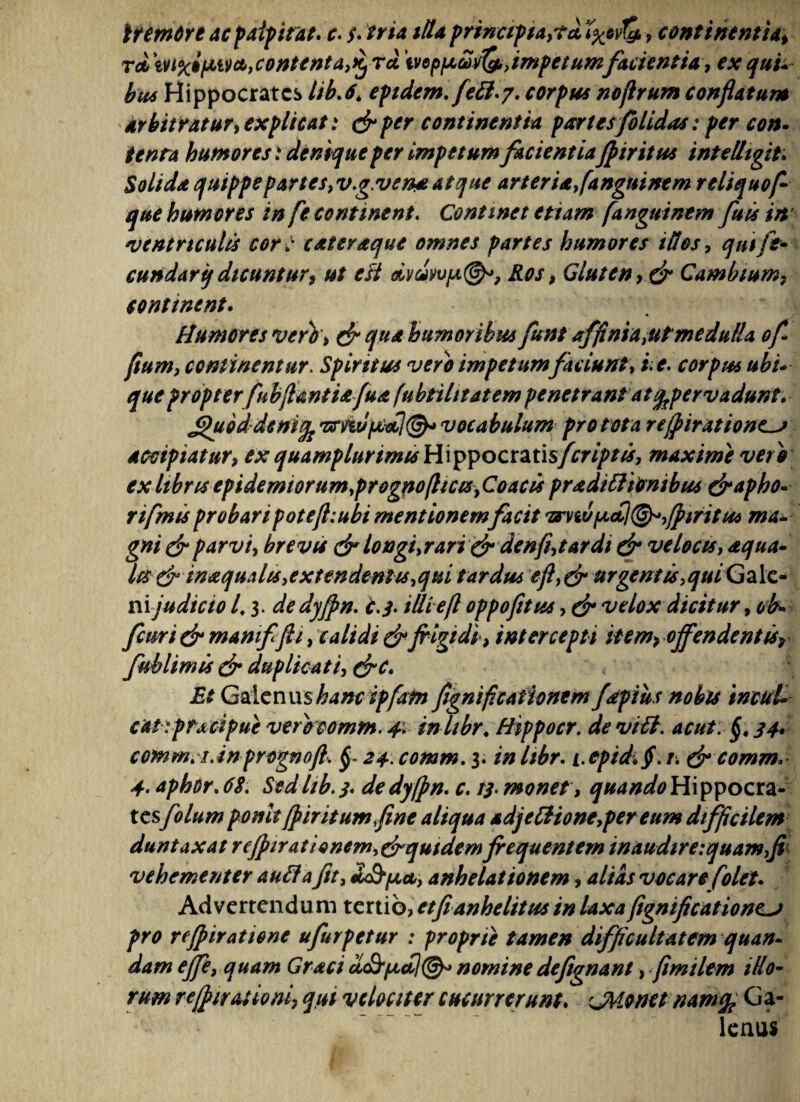 tremore ac palpitat. c. 5. tria illa principia, τὰ ἴχονῖα, continentia,
τὰ ἐνιχόμενα, contenta, & τὰ ἐνορμῶνῖα, impetum facientia, ex qui-
bus Hippocrates lib. 6. epidem. sect. 7. corpus nostrum conflatum
arbitratur, explicat: & per continentia partes solidas: per con-
tenta humores: denique per impetum facientia spiritus intelligit.
Solidæ quippe partes, v.g. venæ atque arteriæ, sanguinem reliquos-
que humores in se continent. Continet etiam sanguinem suis in
ventriculis cor: cæteræque omnes partes humores illos, qui se-
cundarij dicuntur, ut est ἀνώνυμος, Ros, Gluten, & Cambium,
continent.
Humores vero, & quæ humoribus sunt affinia, ut medulla os-
sium, continentur. Spiritus vero impetum faciunt, i. e. corpus ubi-
que propter substantiæ suæ subtilitatem penetrant atq; pervadunt.
Quod deniq; πνεύμαῖος vocabulum pro tota respiratione
accipiatur, ex quamplurimis Hippocratis scriptis, maxime vero
ex libris epidemiorum, prognosticis, Coacis prædictionibus & apho-
rismis probari potest: ubi mentionem facit πνεύμαῖος, spiritus ma-
gni & parvi, brevis & longi, rari & densi, tardi & velocis, æqua-
lis & inæqualis, extendentis, qui tardus est, & urgentis, qui Gale-
ni judicio l. 3. de dyspn. c. 3. illi est oppositus, & velox dicitur, ob-
scuri & manifesti, calidi & frigidi, intercepti item, offendentis,
sublimis & duplicati, &c.
Et Galenus hanc ipsam significationem sæpius nobis incul-
cat: præcipue vero comm. 4. in libr. Hippocr. de vict. acut. §. 34.
comm. 1. in prognost. §. 24. comm. 3. in libr. 1. epid. §. 1. & comm.
4. aphor. 68. Sed lib. 3. de dyspn. c. 13. monet, quando Hippocra-
tes solum ponit spiritum, sine aliqua adjectione, per eum difficilem
duntaxat respirationem, & quidem frequentem inaudire: quam, si
vehementer aucta sit, ἆσθμα, anhelationem, alias vocare solet.
Advertendum tertiò, etsi anhelitus in laxa significatione
pro respiratione usurpetur: proprie tamen difficultatem quan-
dam esse, quam Græci ἄσθμαῖος nomine designant, similem illo-
rum respirationi, qui velociter cucurrerunt. Monet namq; Ga-
lenus